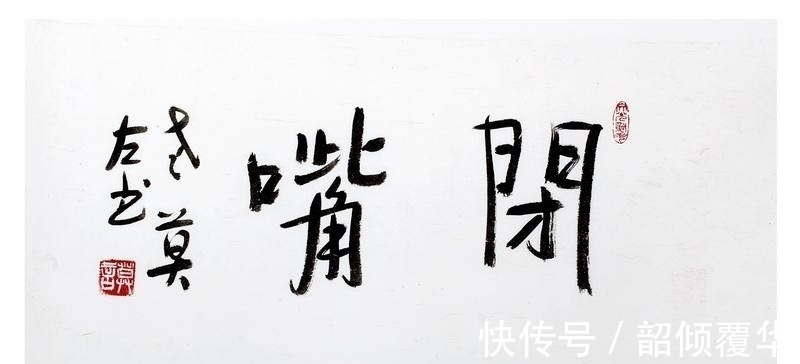 閉嘴
老莫
左书
莫言
快传号 / 韶倾覆华